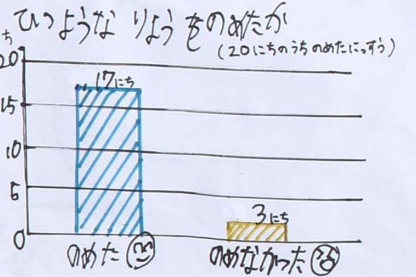 ひつような りょう をのめたか
(20にちのうちのめたにっすう)
ち
20
17にち
15
10
5
3にち
0
のめた
のめなかった